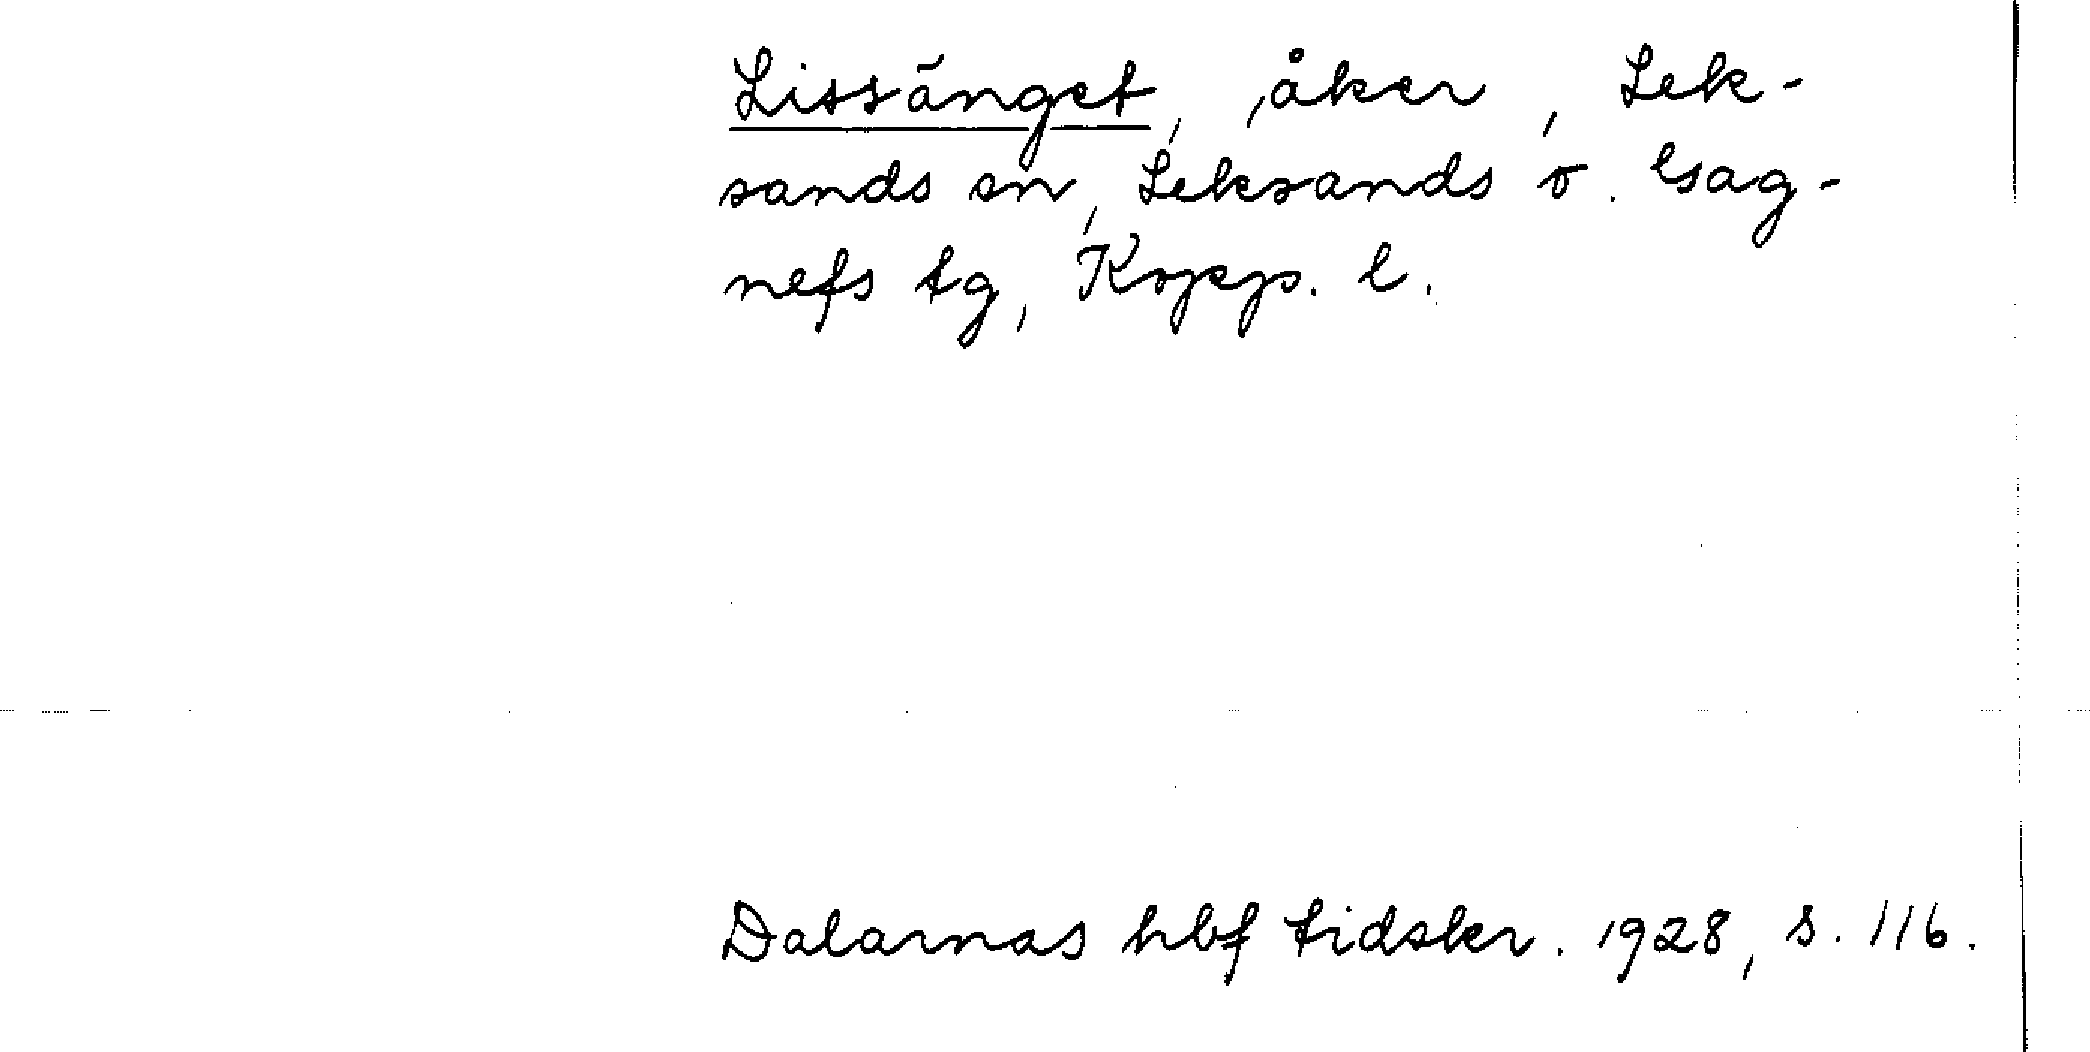 Lissänget, åker, Lek-
sands sn, Leksands o. Gag-
nefs tg, Kopp. l.
Dalarnas hbf tidskr. 1928, s. 116.